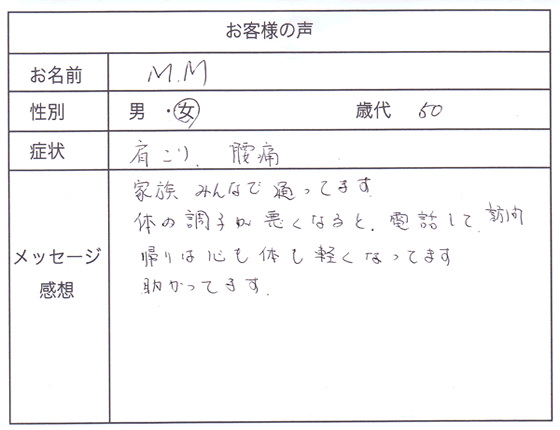 お客様の声
お名前 M.M
性別 男・女 歳代 50
症状 肩こり、腰痛
メッセージ
感想
家族みんなで通ってます
体の調子が悪くなると、電話して、訪問
帰りは心も体も軽くなってます
助かってます。